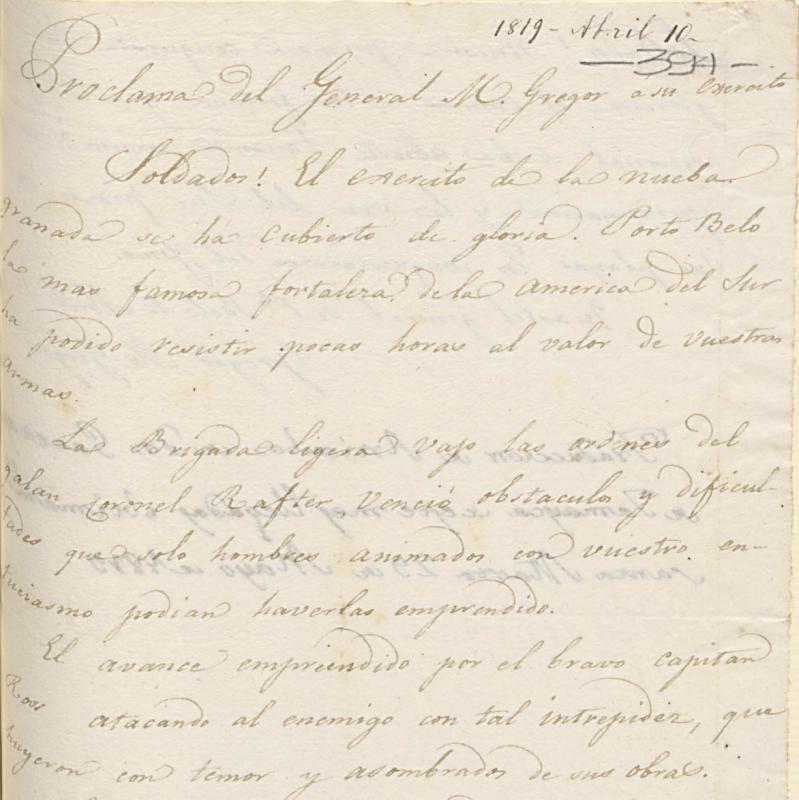 1819 - Abril 10 -
- 394 -
Proclama del General M. Gregor a su exercito
Soldados! El exercito de la nueba
granada se ha cubierto de gloria. Porto Belo
la mas famosa fortaleza de la America del Sur
ha podido resistir pocas horas al valor de vuestras
armas.
La Brigada ligera vajo las ordenes del
galan Coronel Rafter venció obstaculos y dificul-
tades que solo hombres animados con vuestro en-
tuciasmo podian haverlas emprendido.
El avance empreendido por el bravo capitan
Ross atacando al enemigo con tal intrepidez, que
huyeron con temor y asombrados de sus obras.